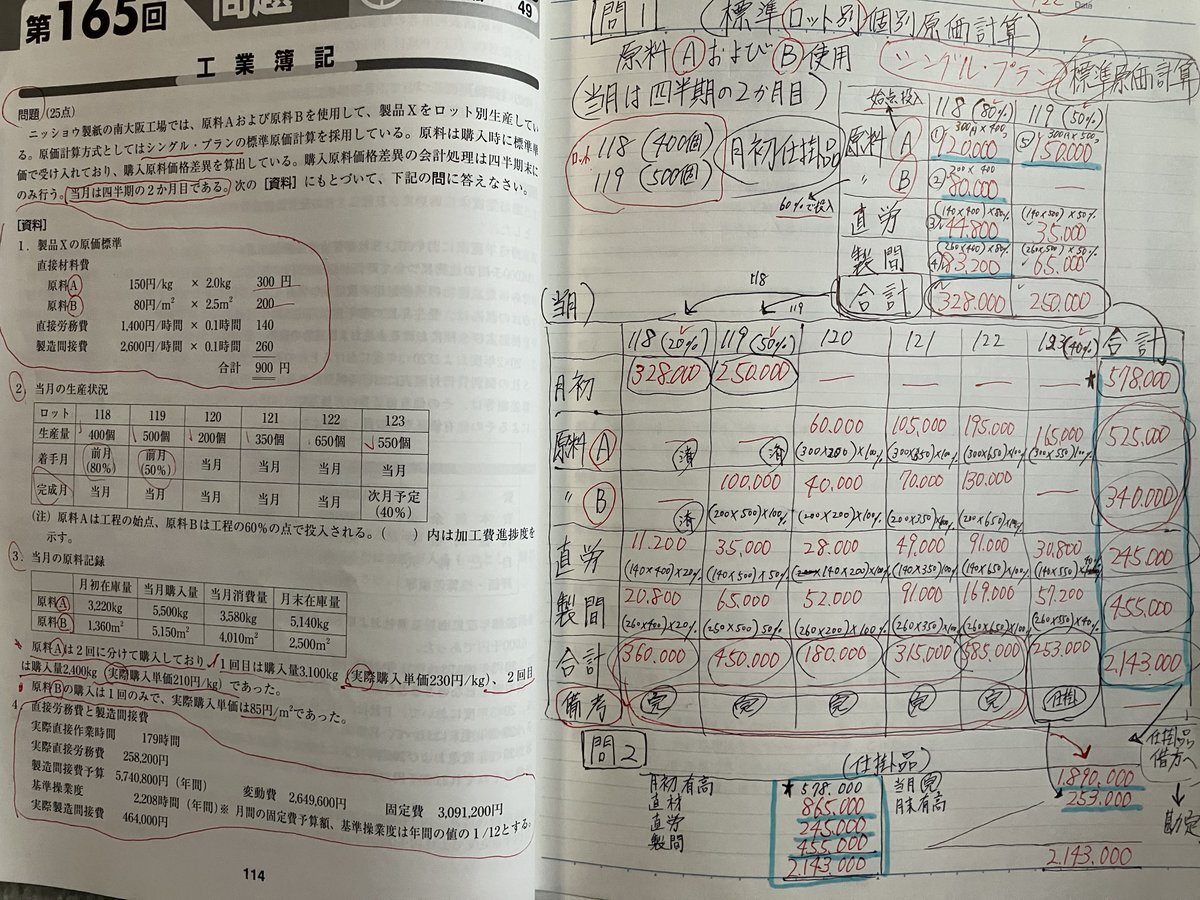 第165回 問題
49
工業簿記
問題 (25点)
ニッショウ製紙の南大阪工場では、原料Aおよび原料Bを使用して、製品Xをロット別生産してい
る。原価計算方式としてはシングル・プランの標準原価計算を採用している。原料は購入時に標準単
価で受け入れており、購入原料価格差異を算出している。購入原料価格差異の会計処理は四半期末に
のみ行う。当月は四半期の2か月目である。次の[資料]にもとづいて、下記の問に答えなさい。
[資料]
1. 製品Xの原価標準
直接材料費
原料A 150円/kg × 2.0kg 300 円
原料B 80円/m² × 2.5m² 200
直接労務費 1,400円/時間 × 0.1時間 140
製造間接費 2,600円/時間 × 0.1時間 260
合計 900 円
2. 当月の生産状況
ロット 118 119 120 121 122 123
生産量 400個 500個 200個 350個 650個 550個
着手月 前月(80%) 前月(50%) 当月 当月 当月 当月
完成月 当月 当月 当月 当月 当月 次月予定(40%)
(注) 原料Aは工程の始点、原料Bは工程の60%の点で投入される。( )内は加工費進捗度を
示す。
3. 当月の原料記録
月初在庫量 当月購入量 当月消費量 月末在庫量
原料A 3,220kg 5,500kg 3,580kg 5,140kg
原料B 1,360m² 5,150m² 4,010m² 2,500m²
原料Aは2回に分けて購入しており、1回目は購入量3,100kg(実際購入単価230円/kg)、2回目
は購入量2,400kg(実際購入単価210円/kg)であった。
原料Bの購入は1回のみで、実際購入単価は85円/m²であった。
4. 直接労務費と製造間接費
実際直接作業時間 179時間
実際直接労務費 258,200円
製造間接費予算 5,740,800円(年間) 変動費 2,649,600円 固定費 3,091,200円
基準操業度 2,208時間(年間)※ 月間の固定費予算額、基準操業度は年間の値の1/12とする。
実際製造間接費 464,000円
114
問1 (標準ロット別個別原価計算)
原料AおよびB使用
シングル・プラン 標準原価計算
(当月は四半期の2か月目)
ロット 118 (400個)
119 (500個)
月初仕掛品
60%で投入
始点投入 118(80%) 119(50%)
原料A ① 300円×400 120.000 ⑤ 300円×500 150.000
〃 B ② 200×400 80.000 —
直労 ③ (140×400)×80% 44.800 (140×500)×50% 35.000
製間 ④ (260×400)×80% 83.200 (260×500)×50% 65.000
合計 328.000 250.000
118
119
(当月)
118(20%) 119(50%) 120 121 122 123(40%) 合計
月初 328.000 250.000 — — — — ★ 578.000
原料A — 済 — 済 60.000 (300×200)×100% 105.000 (300×350)×100% 195.000 (300×650)×100% 165.000 (300×550)×100% 525.000
〃 B — 済 100.000 (200×500)×100% 40.000 (200×200)×100% 70.000 (200×350)×100% 130.000 (200×650)×100% — 340.000
直労 11.200 (140×400)×20% 35.000 (140×500)×50% 28.000 (140×200)×100% 49.000 (140×350)×100% 91.000 (140×650)×100% 30.800 (140×550)×40% 245.000
製間 20.800 (260×400)×20% 65.000 (250×500)50% 52.000 (260×200)×100% 91.000 (260×350)×100% 169.000 (260×650)×100% 57.200 (260×550)×40% 455.000
合計 360.000 450.000 180.000 315.000 585.000 253.000 2.143.000
備考 完 完 完 完 完 仕掛 —
仕掛品借方へ
勘定
問2
(仕掛品)
月初有高 ★ 578.000 当月完 1.890.000
直材 865.000 月末有高 253.000
直労 245.000
製間 455.000
2.143.000 2.143.000